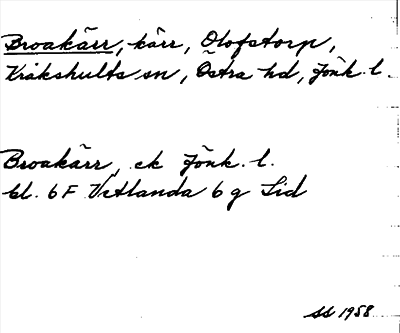 Broakärr, kärr, Olofstorp,
Kråkshults sn, Östra hd, Jönk. l.
Broakärr, ek Jönk. l.
bl. 6 F Vetlanda 6 g Sid
SS 1958